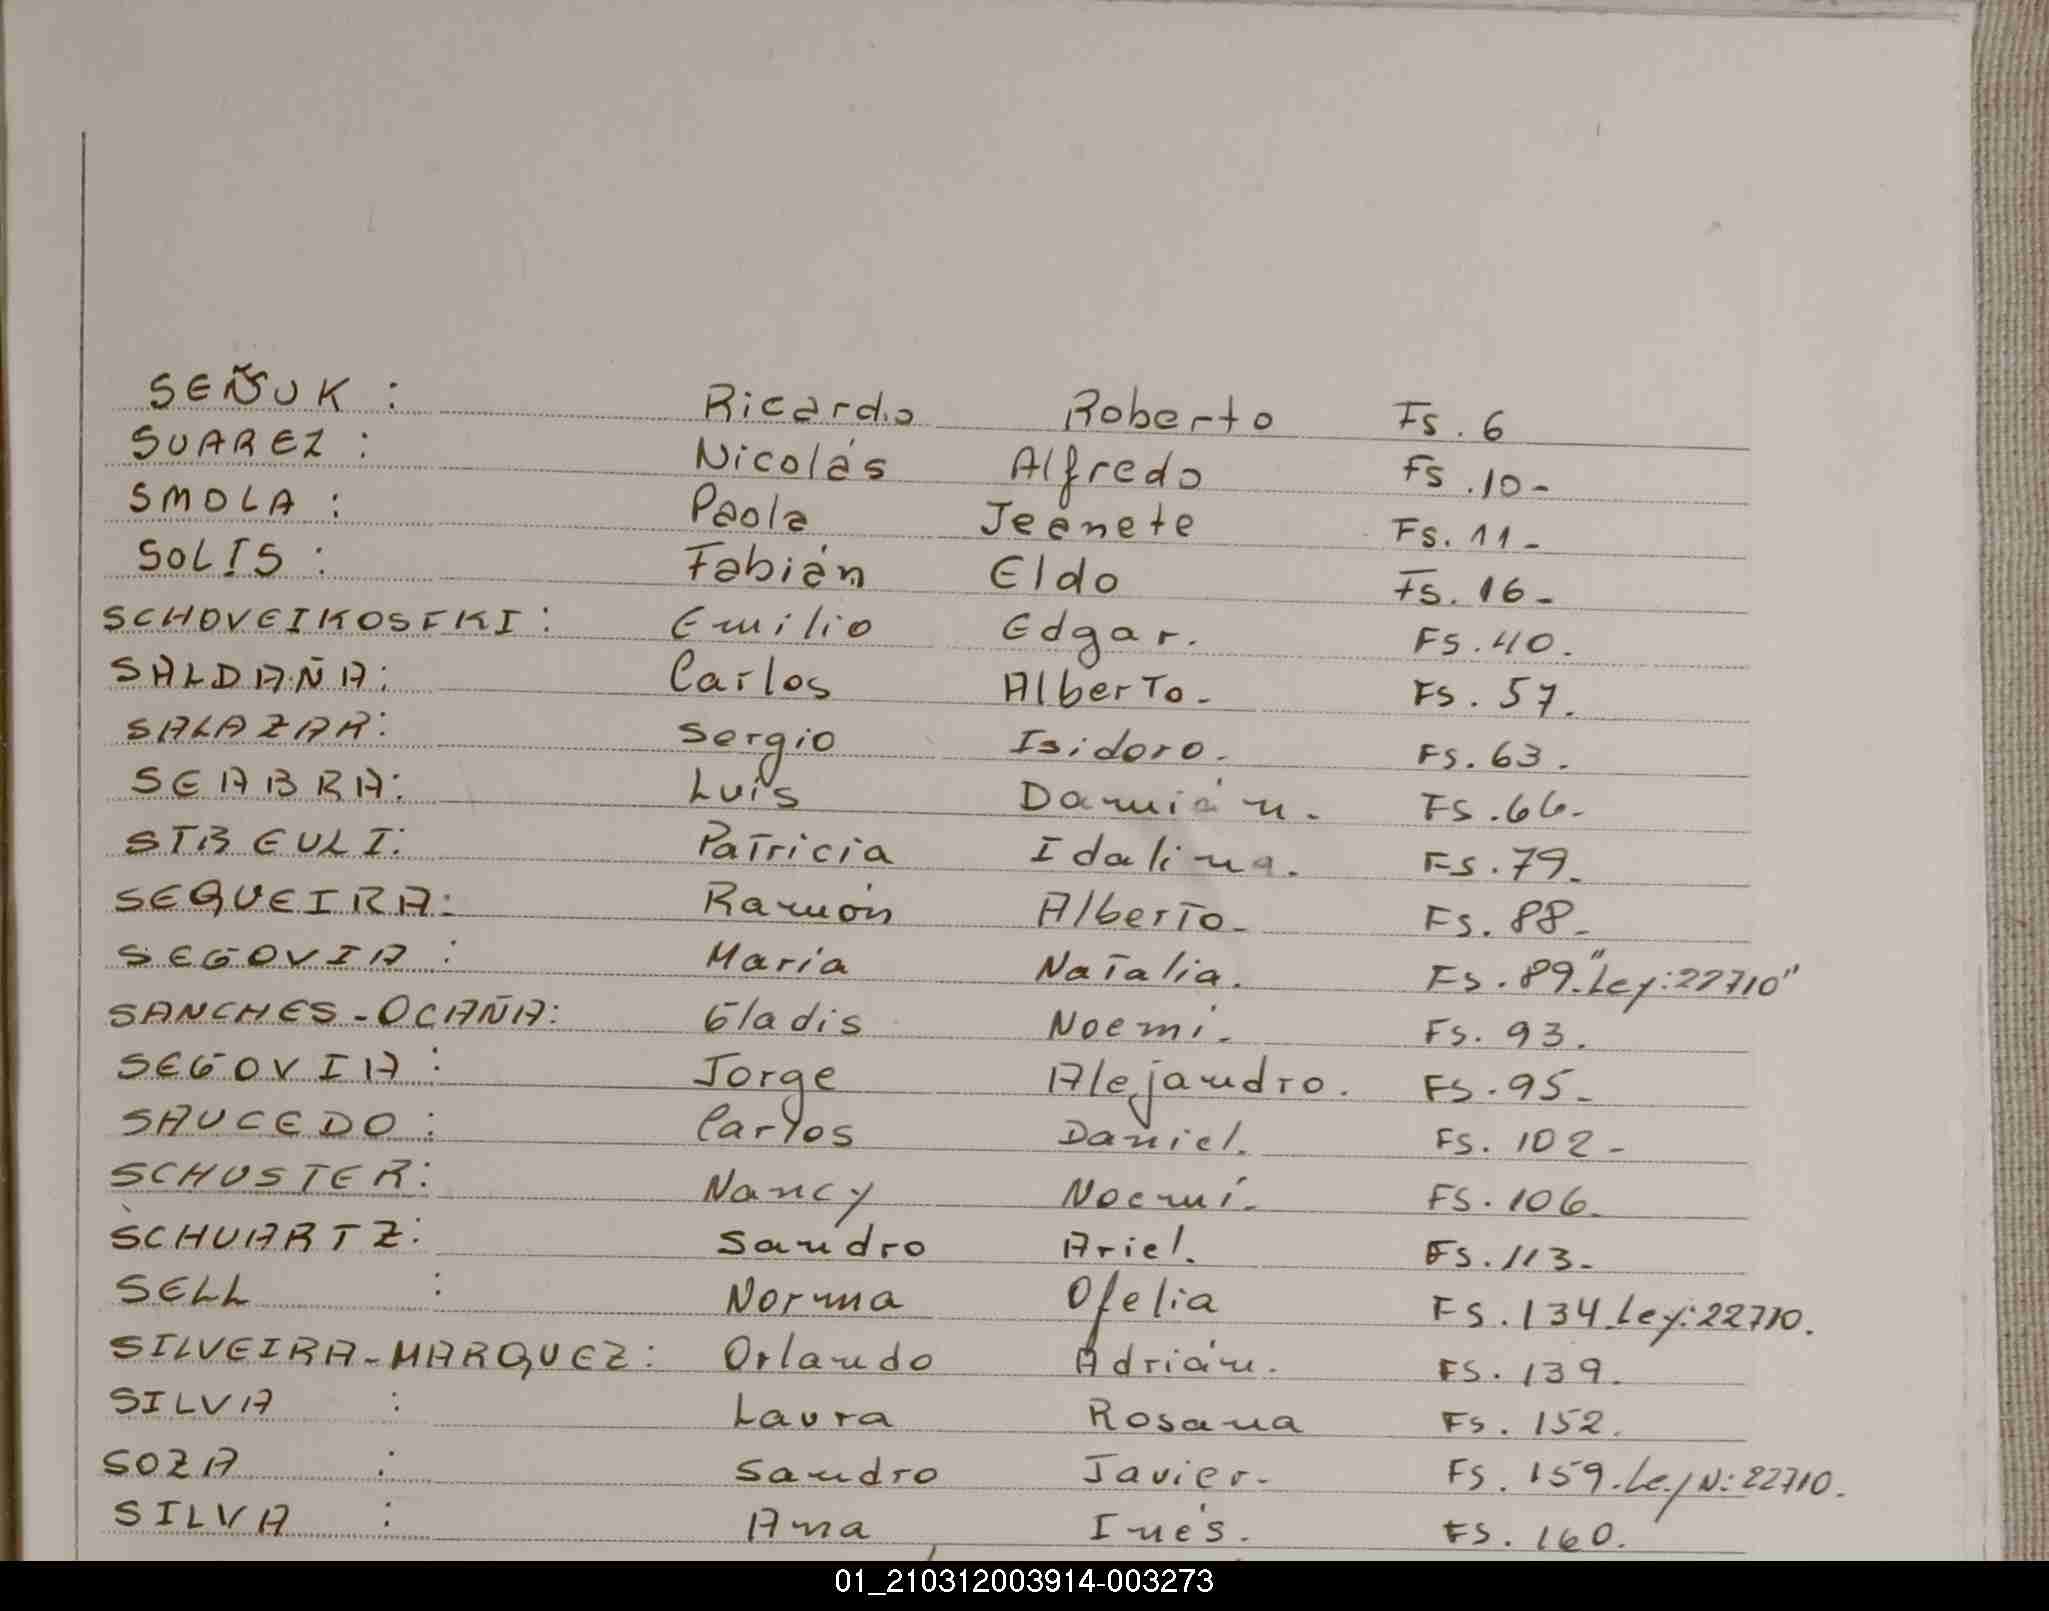 SEÑUK : Ricardo Roberto Fs. 6
SUAREZ : Nicolás Alfredo Fs. 10-
SMOLA : Paola Jeanete Fs. 11-
SOLIS : Fabián Eldo Fs. 16-
SCHOVEIKOSFKI : Emilio Edgar. Fs. 40.
SALDAÑA: Carlos Alberto- Fs. 57.
SALAZAR: Sergio Isidoro. Fs. 63.
SEABRA: Luís Damián. Fs. 66-
STREULI: Patricia Idalina. Fs. 79-
SEQUEIRA: Ramón Alberto- Fs. 88-
SEGOVIA : Maria Natalia. Fs. 89."Ley:22710"
SANCHES-OCAÑA: Gladis Noemí. Fs. 93.
SEGOVIA : Jorge Alejandro. Fs. 95-
SAUCEDO : Carlos Daniel. Fs. 102-
SCHUSTER: Nancy Noemí. Fs. 106-
SCHUARTZ: Sandro Ariel. Fs. 113-
SELL : Norma Ofelia Fs. 134-Ley:22710.
SILVEIRA-MARQUEZ: Orlando Adrián. Fs. 139.
SILVA : Laura Rosana Fs. 152.
SOZA : Sandro Javier- Fs. 159.Ley N:22710.
SILVA : Ana Inés. Fs. 160.
01_210312003914-003273